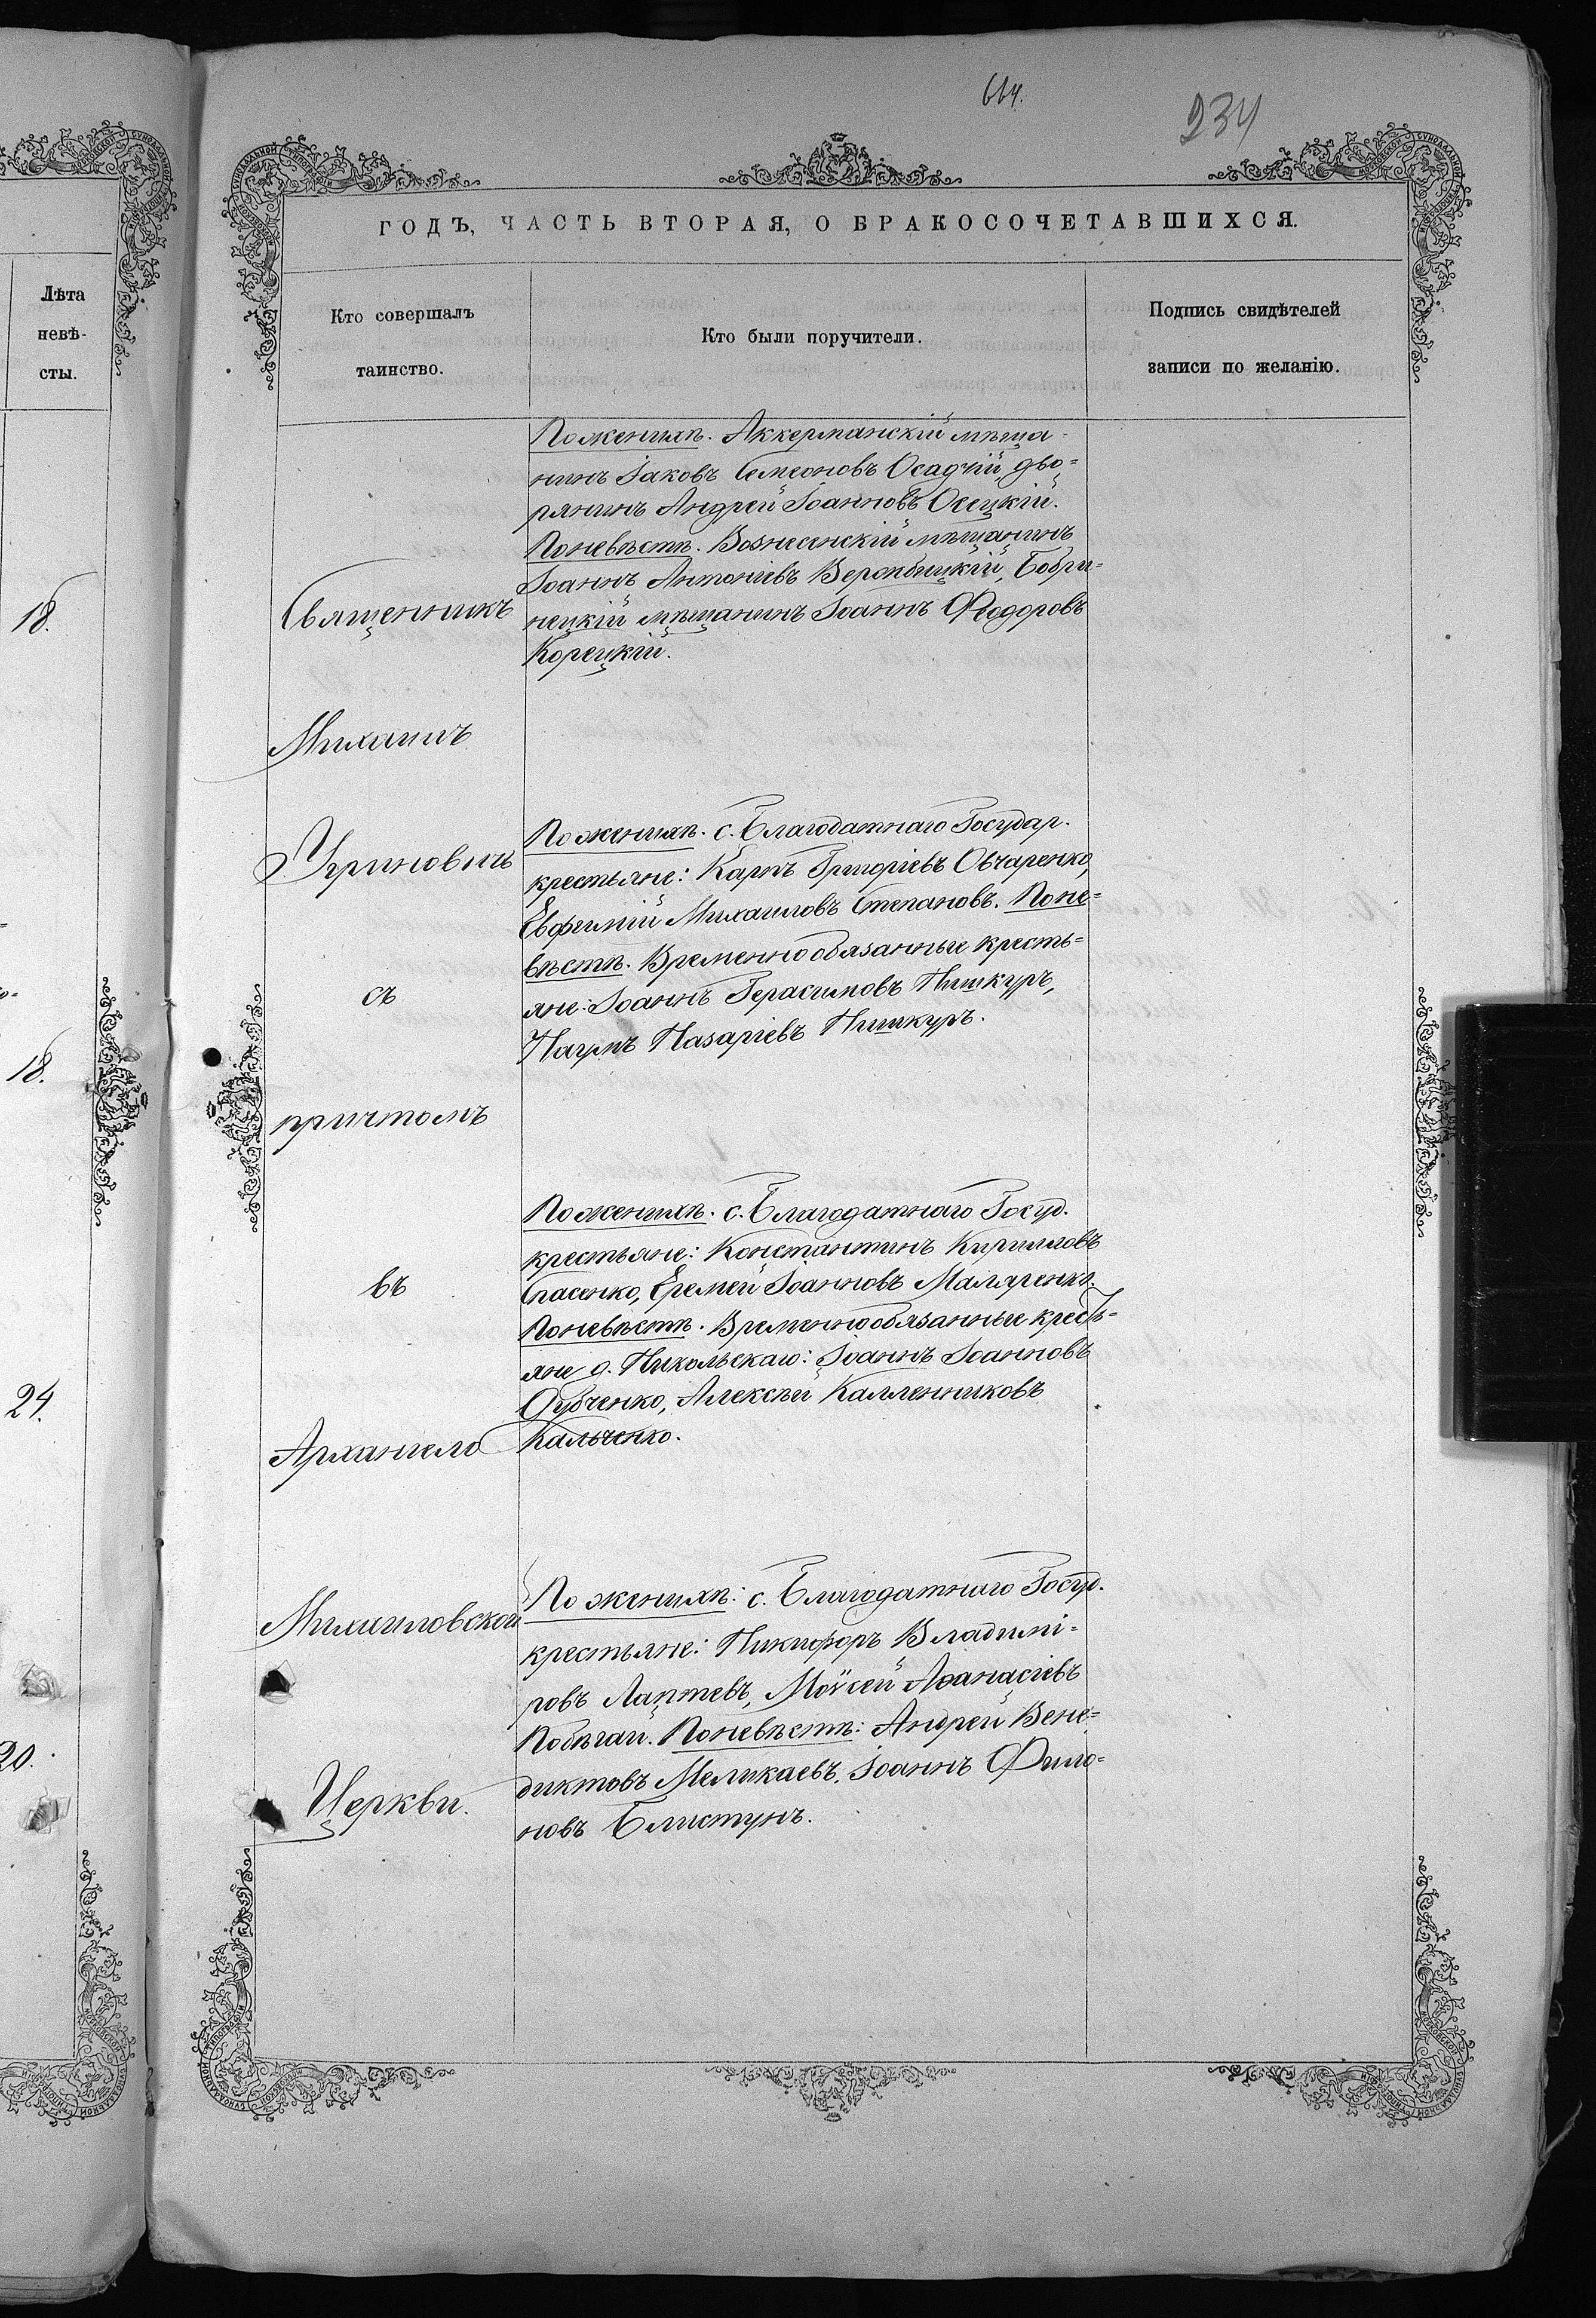 664.
234
ГОДЪ, ЧАСТЬ ВТОРАЯ, О БРАКОСОЧЕТАВШИХСЯ.
Лѣта
невѣ-
сты.
Кто совершалъ
таинство.
Кто были поручители.
Подпись свидѣтелей
записи по желанію.
18.
18.
24.
20.
Священникъ
Михаилъ
Уриновичъ
съ
причтомъ
въ
Архангело
Михаиловской
Церкви.
По женихѣ. Аккерманскій мѣща-
нинъ Іаковъ Семеоновъ Осадчій, дво=
рянинъ Андрей Іоанновъ Осецкій.
По невѣстѣ. Вознесенскій мѣщанинъ
Іоаннъ Антоніевъ Верембицкій, Бобри-
нецкій мѣщанинъ Іоаннъ Ѳеодоровъ
Корецкій.
По женихѣ. с. Благодатнаго Государ.
крестьяне: Карпъ Григоріевъ Овчаренко,
Евфимій Михаиловъ Степановъ. По не=
вѣстѣ. Временно обязанные кресть=
яне: Іоаннъ Герасимовъ Пишкуръ,
Наумъ Назаріевъ Пишкуръ.
По женихѣ. с. Благодатнаго Госуд.
крестьяне: Константинъ Кирилловъ
Спасенко, Еремей Іоанновъ Маляренко.
По невѣстѣ. Временнообязанные кресть=
яне д. Никольскаго: Іоаннъ Іоанновъ
Дубченко, Алексѣй Каллениковъ
Кальченко.
По женихѣ: с. Благодатнаго Госуд.
крестьяне: Никифоръ Владимі-
ровъ Лаптевъ, Моѵсей Аѳанасіевъ
Побѣгай. По невѣстѣ: Андрей Вене=
диктовъ Меликаевъ, Іоаннъ Фило=
новъ Блистунъ.